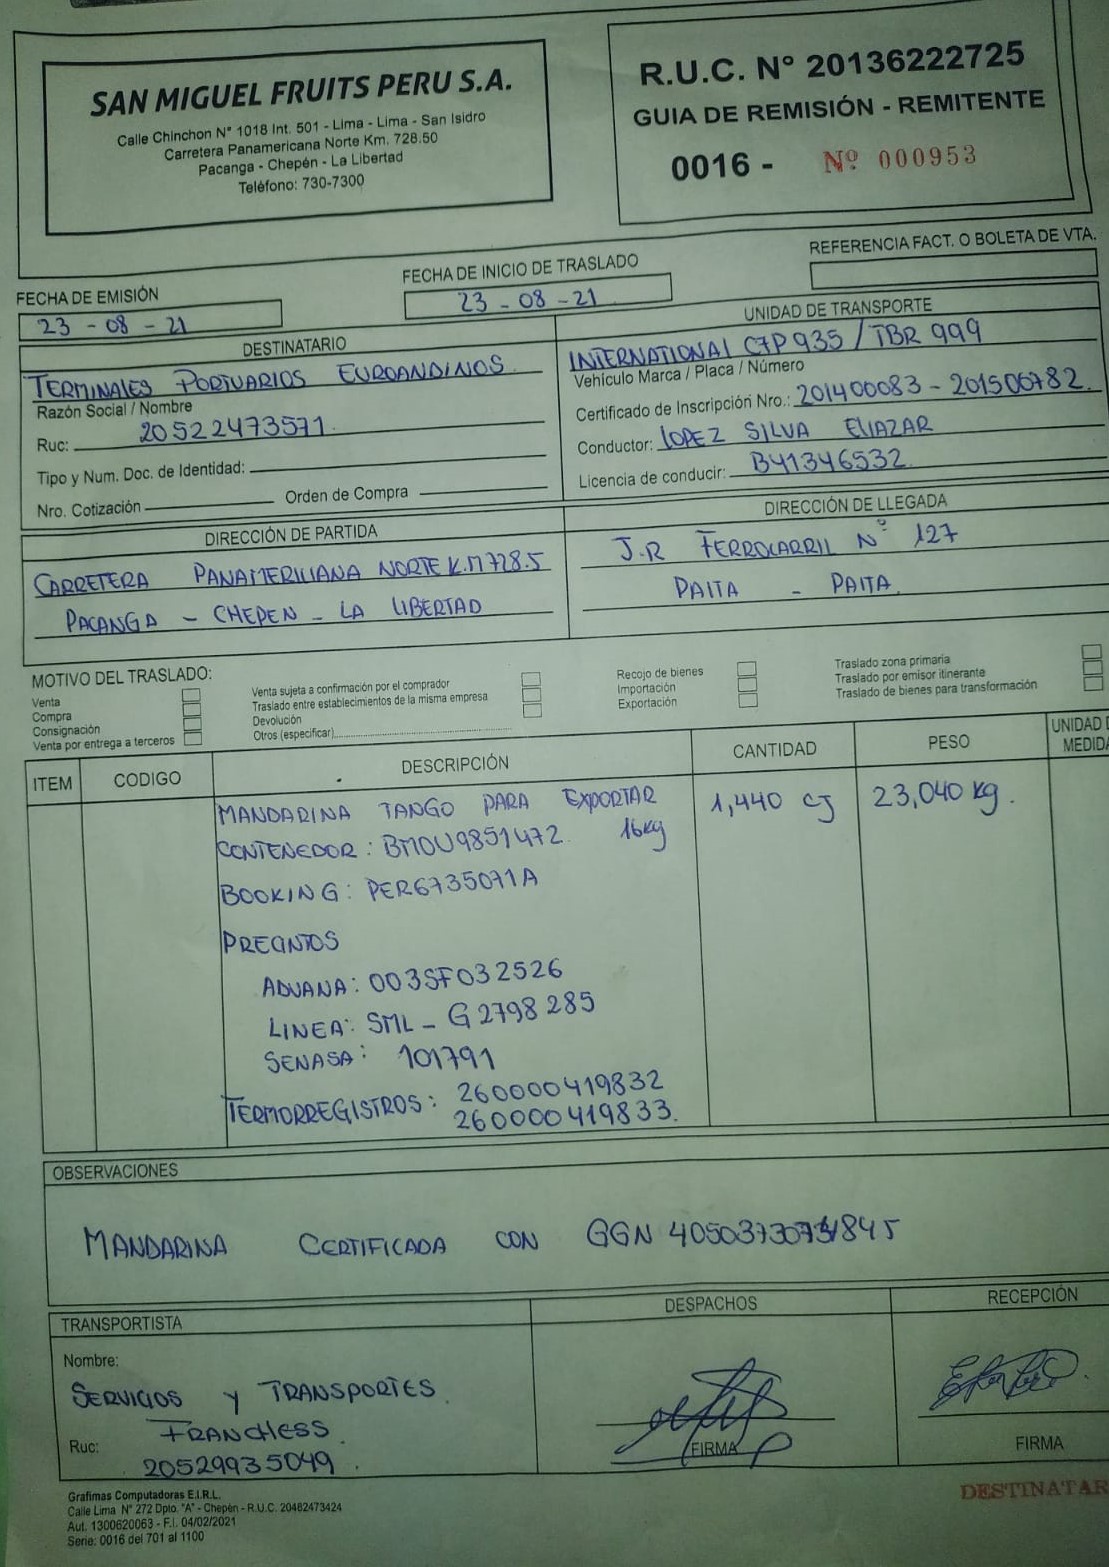 SAN MIGUEL FRUITS PERU S.A.
Calle Chinchon N° 1018 Int. 501 - Lima - Lima - San Isidro
Carretera Panamericana Norte Km. 728.50
Pacanga - Chepén - La Libertad
Teléfono: 730-7300
R.U.C. N° 20136222725
GUIA DE REMISIÓN - REMITENTE
0016 - Nº 000953
REFERENCIA FACT. O BOLETA DE VTA.
FECHA DE EMISIÓN
23 - 08 - 21
FECHA DE INICIO DE TRASLADO
23 - 08 - 21
DESTINATARIO
TERMINALES PORTUARIOS EUROANDINOS
Razón Social / Nombre
Ruc: 20522473571
Tipo y Num. Doc. de Identidad:
Nro. Cotización Orden de Compra
UNIDAD DE TRANSPORTE
INTERNATIONAL C7P 935 / TBR 999
Vehículo Marca / Placa / Número
Certificado de Inscripción Nro.: 201400083 - 201506782
Conductor: LOPEZ SILVA ELIAZAR
Licencia de conducir: B41346532
DIRECCIÓN DE PARTIDA
CARRETERA PANAMERICANA NORTE K.M 728.5
PACANGA - CHEPEN - LA LIBERTAD
DIRECCIÓN DE LLEGADA
J.R FERROCARRIL Nº 127
PAITA - PAITA
MOTIVO DEL TRASLADO:
Venta
Compra
Consignación
Venta por entrega a terceros
Venta sujeta a confirmación por el comprador
Traslado entre establecimientos de la misma empresa
Devolución
Otros (especificar)
Recojo de bienes
Importación
Exportación
Traslado zona primaria
Traslado por emisor itinerante
Traslado de bienes para transformación
ITEM CODIGO DESCRIPCIÓN CANTIDAD PESO UNIDAD D
MEDIDA
MANDARINA TANGO PARA EXPORTAR 1,440 CJ 23,040 kg.
CONTENEDOR: BMOU9851472. 16kg
BOOKING: PER6735071A
PRECINTOS
ADUANA: 003SF032526
LINEA: SML - G2798285
SENASA: 101791
TERMORREGISTROS: 260000419832
260000419833.
OBSERVACIONES
MANDARINA CERTIFICADA CON GGN
TRANSPORTISTA
Nombre:
SERVICIOS Y TRANSPORTES
FRANCHESS
Ruc: 20529935049
DESPACHOS
FIRMA
RECEPCIÓN
FIRMA
Grafimas Computadoras E.I.R.L.
Calle Lima N° 272 Dpto. "A" - Chepén - R.U.C. 20482473424
Aut. 1300620063 - F.I. 04/02/2021
Serie: 0016 del 701 al 1100
DESTINATAR